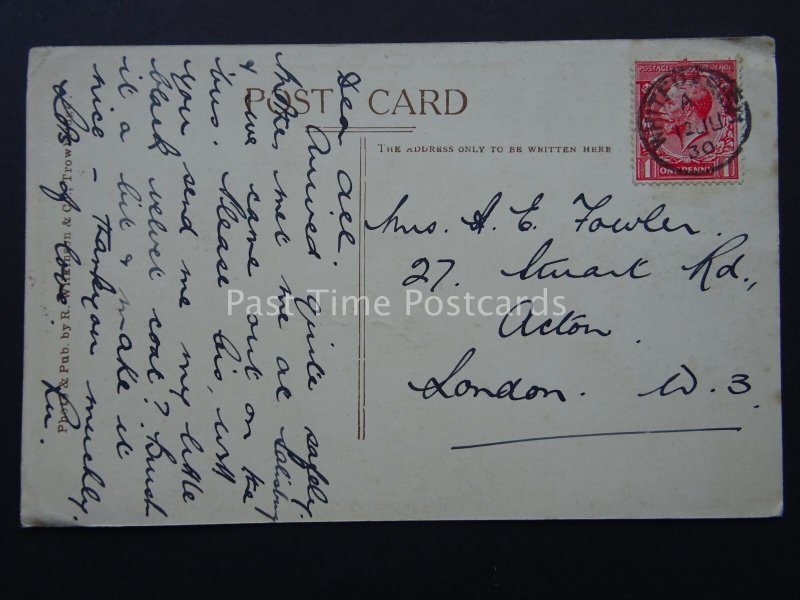 POST CARD
THE ADDRESS ONLY TO BE WRITTEN HERE
Dear all.
Arrived quite safely.
met me at Salisbury
& we came out on the
'bus. Please Lis, will
you send me my little
black velvet coat? Brush
it a bit & make it
nice – thankyou muchly.
Lots of love
Photo & Pub. by R. Wilkinson & Co. Trow
Mrs. A. E. Fowler.
27. Stuart Rd.,
Acton.
London. W. 3.
POSTAGE REVENUE
ONE PENNY
12 JU
30
Past Time Postcards